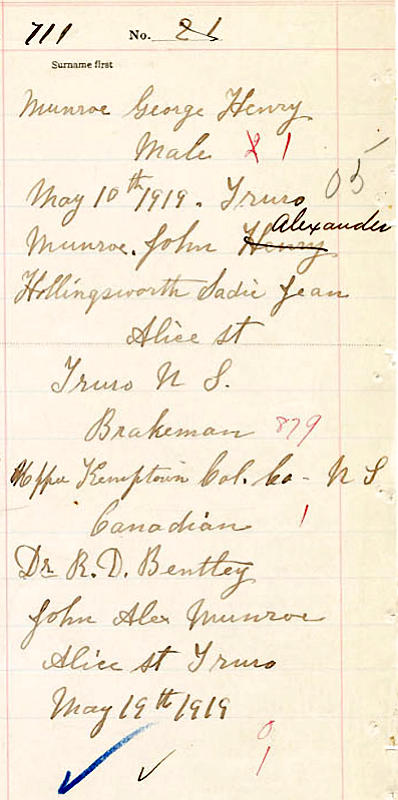 711 No. 21
Surname first
Munroe George Henry
Male X 1
May 10th 1919. Truro 05
Alexander
Munroe. John Henry
Hollingsworth Sadie Jean
Alice st
Truro N S.
Brakeman 879
Upper Kemptown Col. Co - N S
Canadian 1
Dr R. D. Bentley
John Alex Munroe
Alice st Truro
May 19th 1919
0
1